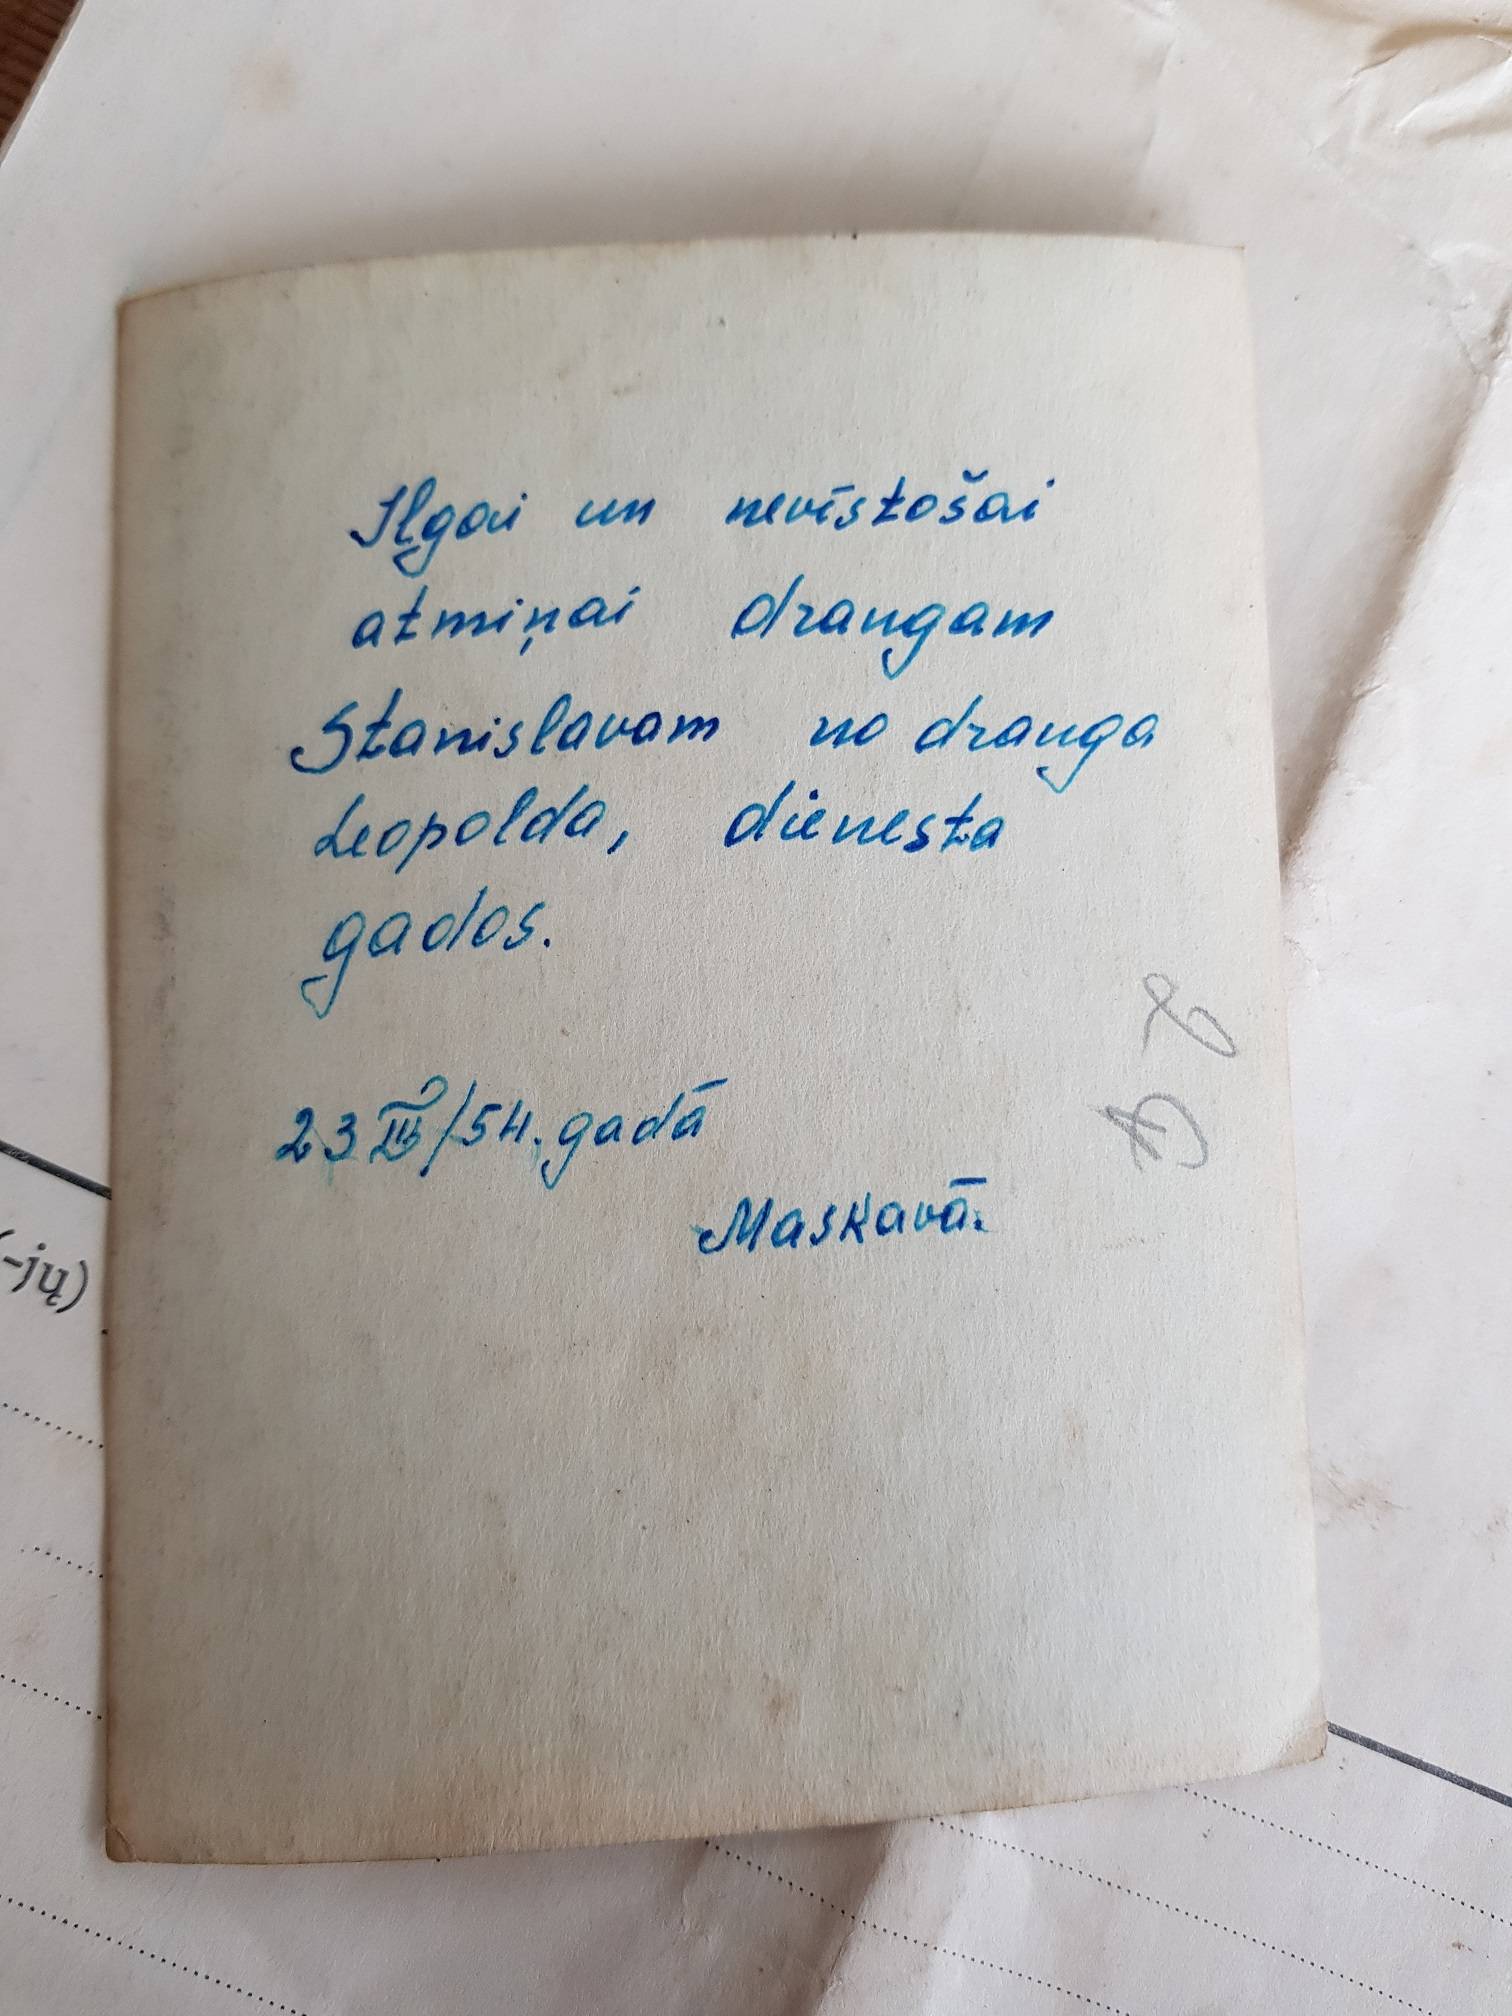 Iļgai un nevīstošai
atmiņai draugam
Stanislavam no drauga
Leopolda, dienesta
gados.
23 III/54. gadā
Maskavā.
(-jų)